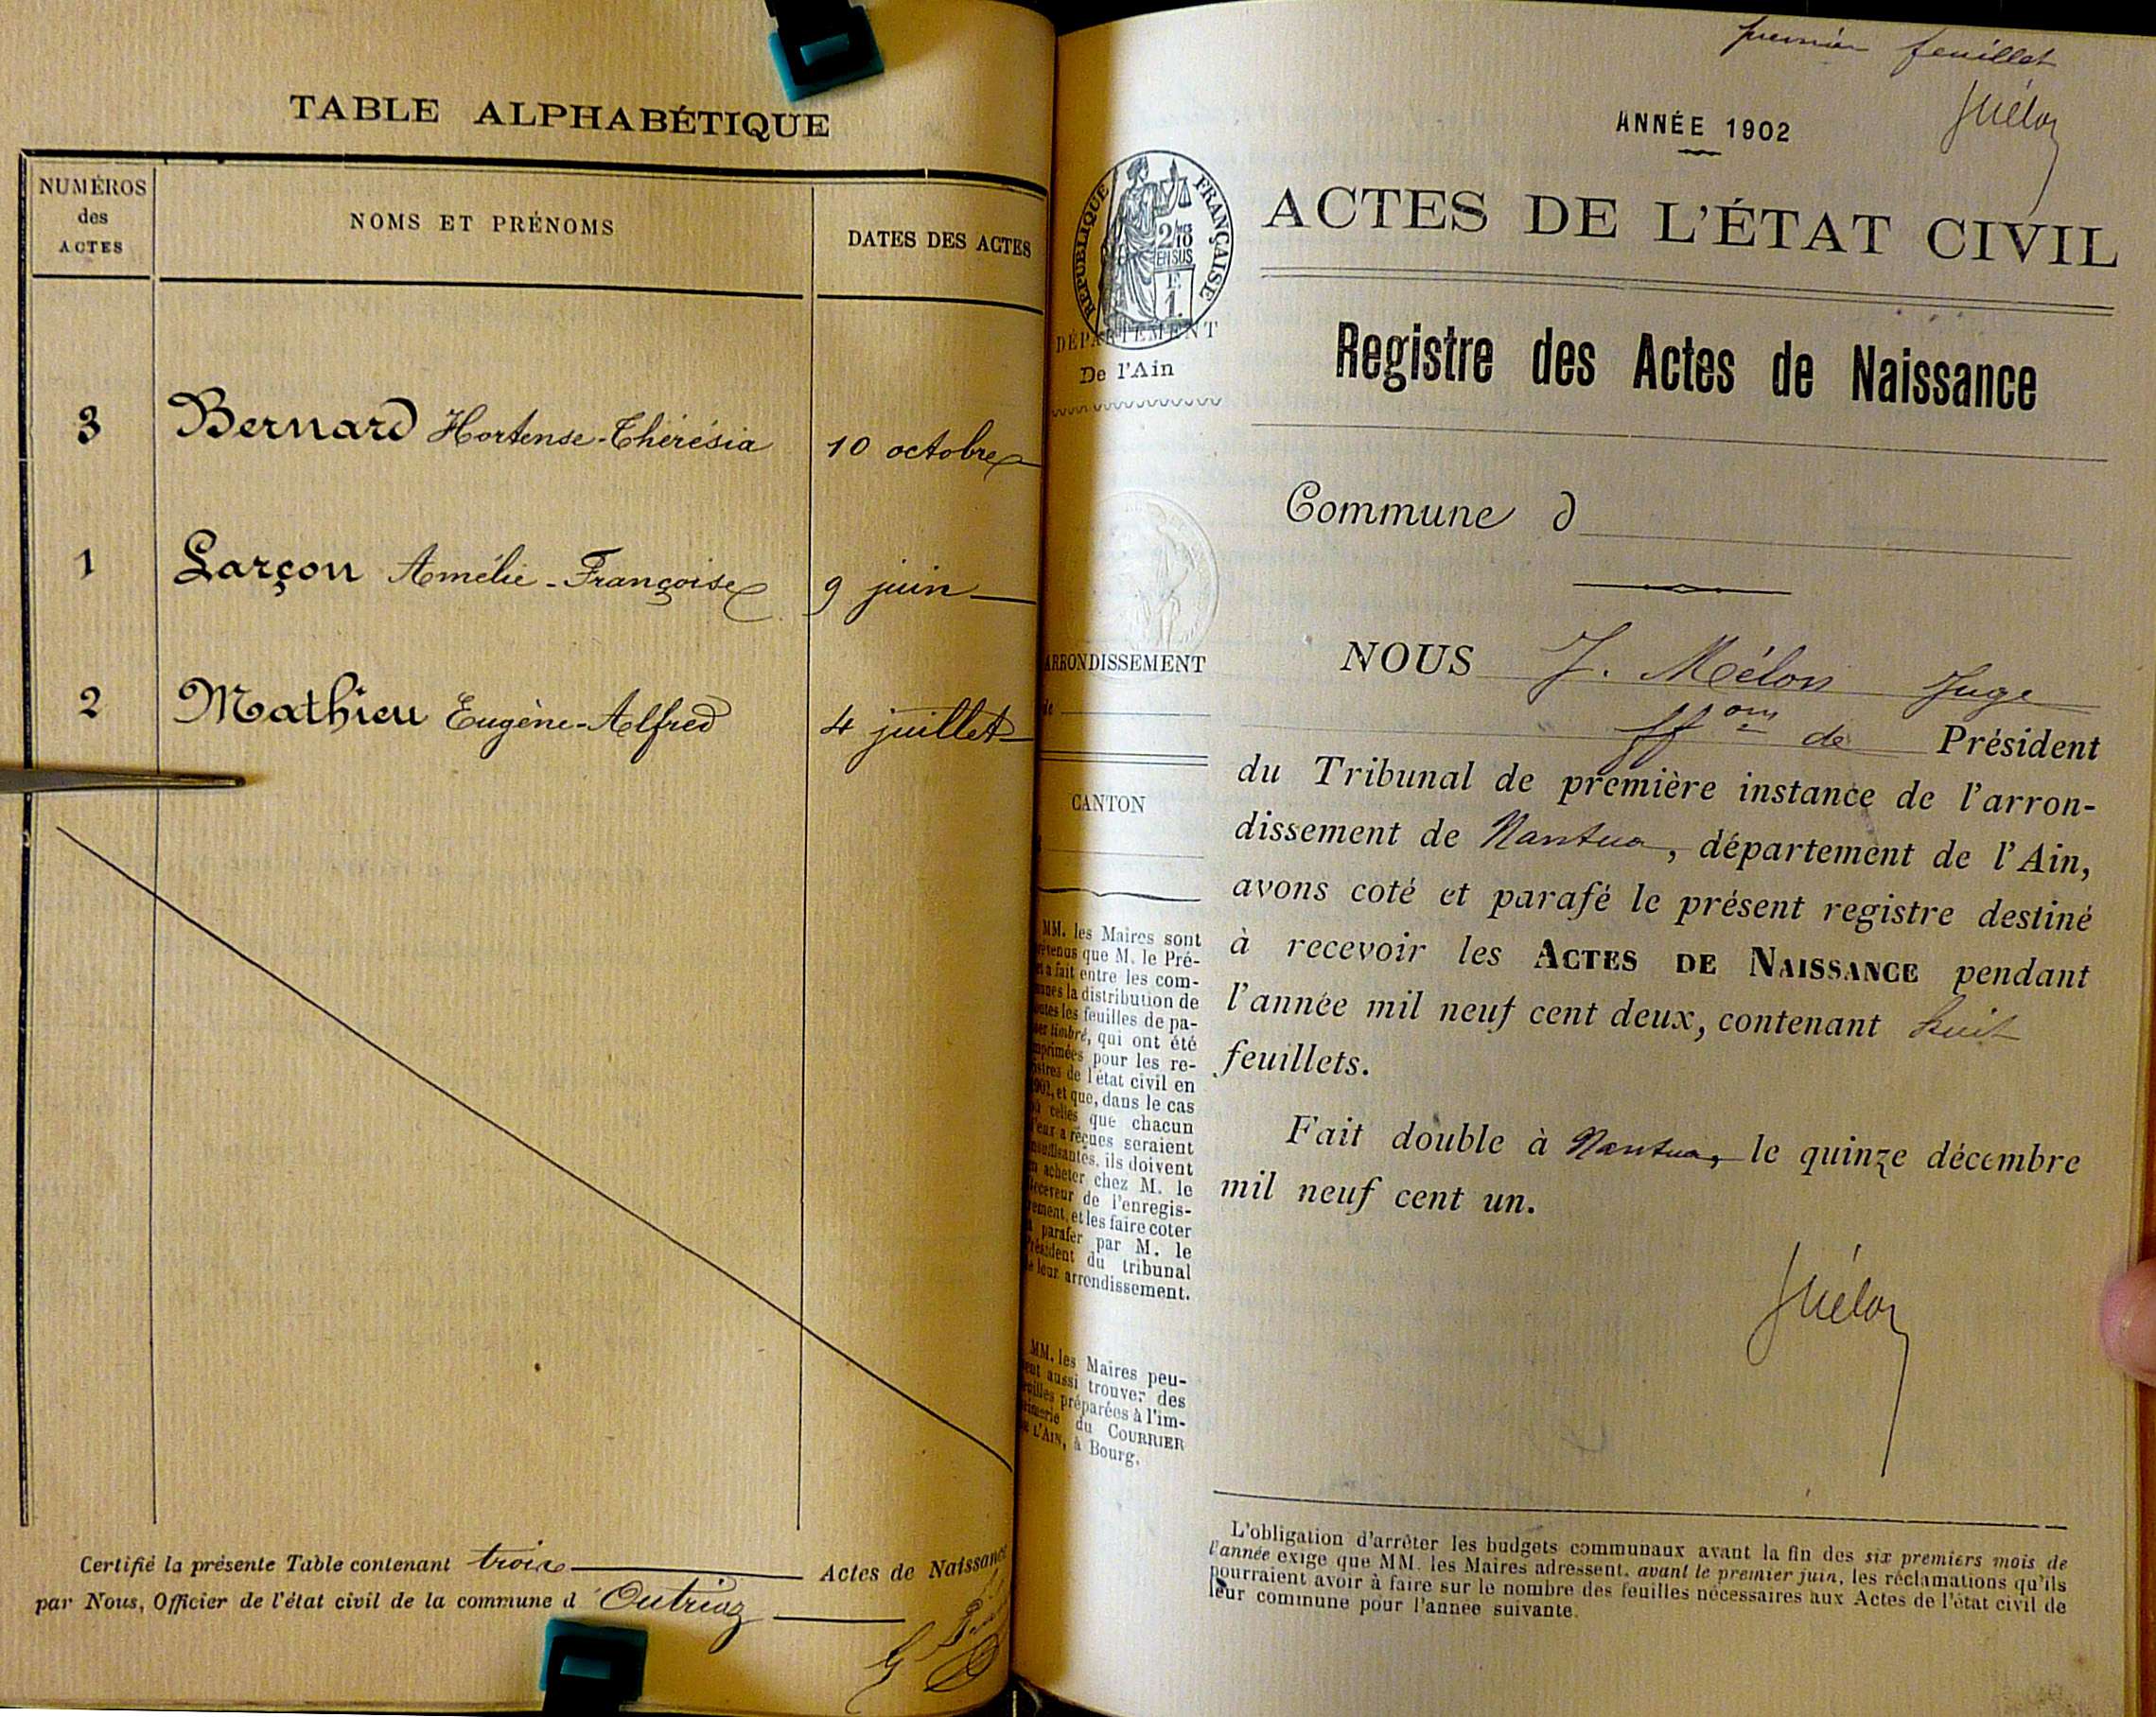 TABLE ALPHABÉTIQUE
NUMÉROS
des
ACTES
NOMS ET PRÉNOMS
DATES DES ACTES
3 Bernard Hortense-Thérésia 10 octobre
1 Larçon Amélie-Françoise 9 juin
2 Mathieu Eugène-Alfred 4 juillet
Certifié la présente Table contenant trois Actes de Naissance
par Nous, Officier de l'état civil de la commune d'Outriaz
premier feuillet
JMélon
ANNÉE 1902
RÉPUBLIQUE FRANÇAISE
2/10
EN SUS
E
1.
DÉPARTEMENT
De l'Ain
ARRONDISSEMENT
de
CANTON
MM. les Maires sont
prévenus que M. le Pré-
fet a fait entre les com-
munes la distribution de
toutes les feuilles de pa-
pier timbré, qui ont été
imprimées pour les re-
gistres de l'état civil en
1902, et que, dans le cas
où celles que chacun
d'eux a reçues seraient
insuffisantes, ils doivent
en acheter chez M. le
Receveur de l'enregis-
trement, et les faire coter
et parafer par M. le
Président du tribunal
de leur arrondissement.
MM. les Maires peu-
vent aussi trouver des
feuilles préparées à l'im-
primerie du COURRIER
DE L'AIN, à Bourg.
ACTES DE L'ÉTAT CIVIL
Registre des Actes de Naissance
Commune d
NOUS J. Mélon Juge
ff ons de Président
du Tribunal de première instance de l'arron-
dissement de Nantua, département de l'Ain,
avons coté et parafé le présent registre destiné
à recevoir les ACTES DE NAISSANCE pendant
l'année mil neuf cent deux, contenant huit
feuillets.
Fait double à Nantua, le quinze décembre
mil neuf cent un.
JMélon
L'obligation d'arrêter les budgets communaux avant la fin des six premiers mois de
l'année exige que MM. les Maires adressent, avant le premier juin, les réclamations qu'ils
pourraient avoir à faire sur le nombre des feuilles nécessaires aux Actes de l'état civil de
leur commune pour l'année suivante.